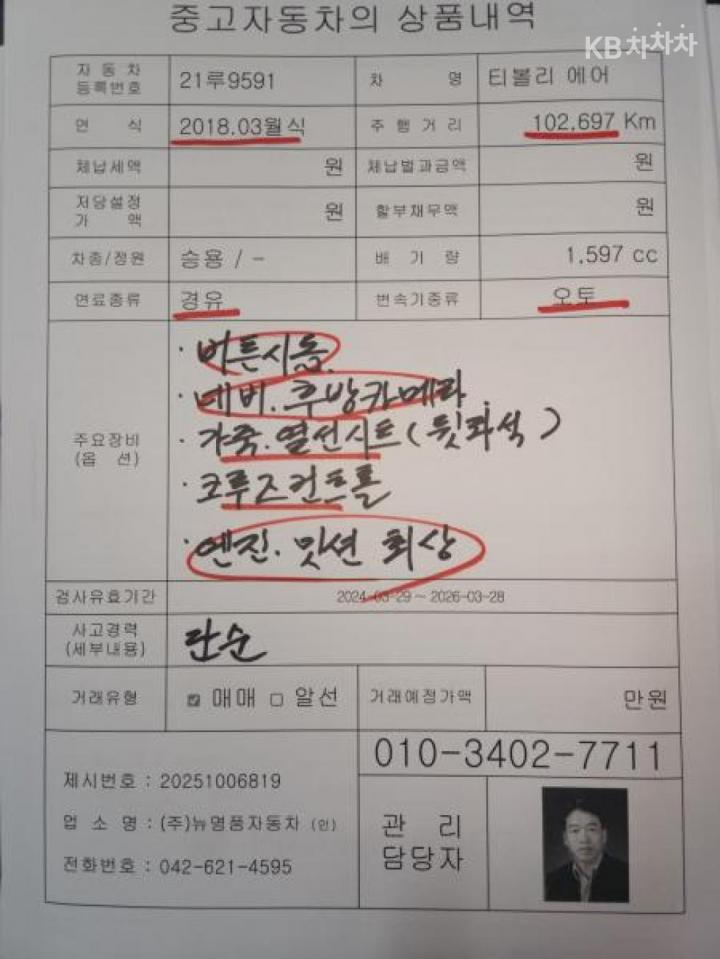 중고자동차의 상품내역
KB차차차
자동차 등록번호 21루9591 차명 티볼리 에어
연식 2018.03월식 주행거리 102,697 Km
체납세액 원 체납벌과금액 원
저당설정가액 원 할부채무액 원
차종/정원 승용 / - 배기량 1,597 cc
연료종류 경유 변속기종류 오토
주요장비
(옵션)
· 버튼시동.
· 네비. 후방카메라.
· 가죽. 열선시트 (뒷좌석)
· 크루즈컨트롤
· 엔진. 밋션 최상
검사유효기간 2024-03-29 ~ 2026-03-28
사고경력
(세부내용) 단순
거래유형 ☑ 매매 □ 알선 거래예정가액 만원
010-3402-7711
제시번호 : 20251006819
업소명 : (주)뉴명품자동차 (인)
전화번호 : 042-621-4595
관리
담당자